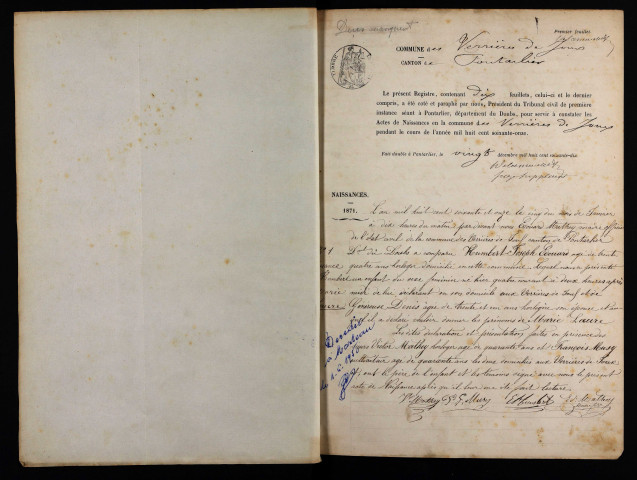 Premier feuillet
COMMUNE des Verrières de Joux
CANTON de Pontarlier
Le présent Registre, contenant Dix feuillets, celui-ci et le dernier
compris, a été coté et paraphé par nous, Président du Tribunal civil de première
instance séant à Pontarlier, département du Doubs, pour servir à constater les
Actes de Naissances en la commune des Verrières de Joux
pendant le cours de l'année mil huit cent soixante-onze.
Fait double à Pontarlier, le vingt Novembre mil huit cent soixante-dix
juge suppléant
NAISSANCES.
1871.
L'an mil huit cent soixante et onze le cinq du mois de Janvier
à dix heures du matin, par devant nous Edouard Mathey maire officier
de l'état civil de la commune des Verrières de Joux canton de Pontarlier
N° 1
Dt du Doubs a comparu Humbert Joseph Edouard âgé de trente
quatre ans horloger domicilié en cette commune lequel nous a présenté
un enfant du sexe féminin né hier quatre courant à deux heures après
midi de lui déclarant en son domicile aux Verrières de Joux et de
Denis âgée de trente et un ans horlogère son épouse et
auquel il a déclaré vouloir donner les prénoms de Marie Laure
Les dites déclaration et présentation faites en présence des
sieurs Victor Mathey horloger âgé de quarante ans et François Musy
cultivateur âgé de quarante ans les deux domiciliés aux Verrières de Joux
et ont le père de l'enfant et les témoins signé avec nous le présent
acte de Naissance après qu'il leur en a été fait lecture.
Vr Mathey F. Musy Ed Humbert Ed. Mathey